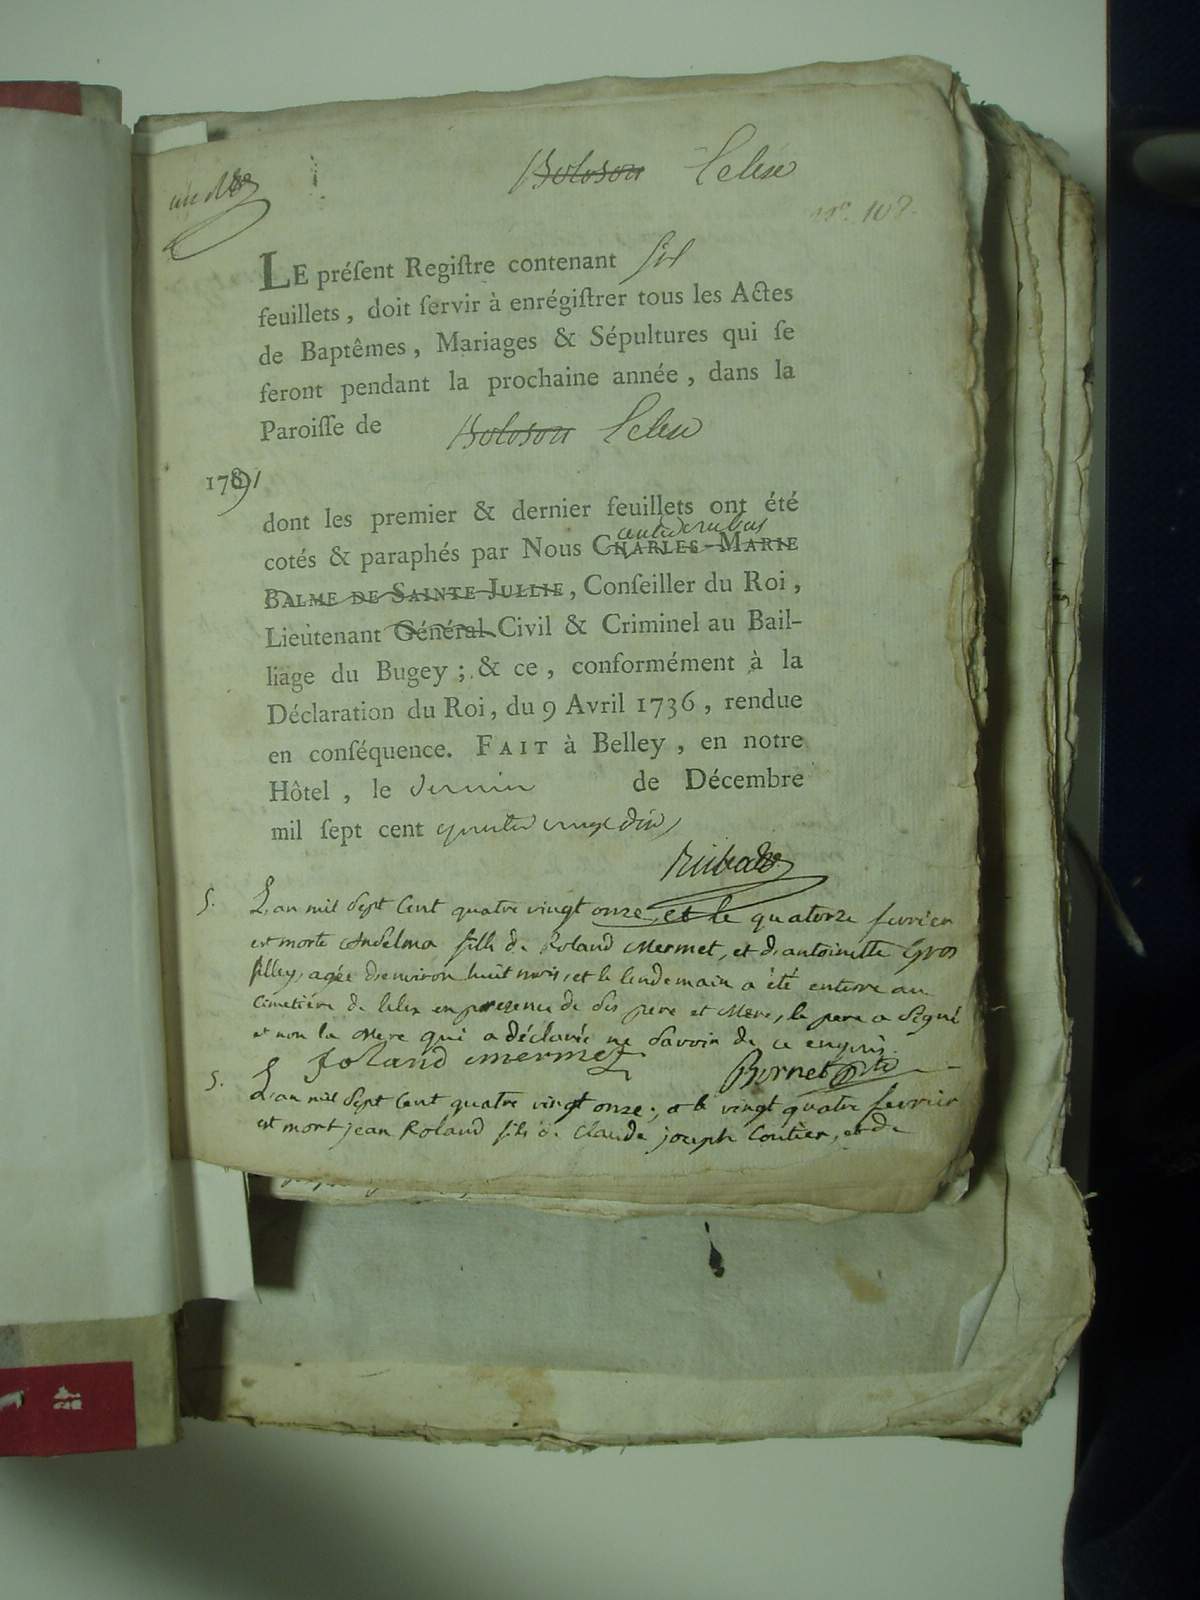 Boloson Lelex
n°. 108.
LE préſent Regiſtre contenant six
feuillets, doit ſervir à enrégiſtrer tous les Actes
de Baptêmes, Mariages & Sépultures qui ſe
feront pendant la prochaine année, dans la
Paroiſſe de Boloson Lelex
1791
dont les premier & dernier feuillets ont été
cotés & paraphés par Nous CHARLES-MARIE
BALME DE SAINTE JULLIE, Conſeiller du Roi,
Lieutenant Général Civil & Criminel au Bail-
liage du Bugey; & ce, conformément à la
Déclaration du Roi, du 9 Avril 1736, rendue
en conſéquence. FAIT à Belley, en notre
Hôtel, le dernier de Décembre
mil ſept cent quatre vingt dix
S. L'an mil sept Cent quatre vingt onze, et le quatorze fevrier
est morte Anselma fille de Roland Mermet, et d'antoinette Gros
fillex, agée d'environ huit mois, et le lendemain a été enterré au
Cimetière de lelex en presence de ses pere et Mere, le pere a signé
et non la Mere qui a déclaré ne savoir de ce enquis.
Joland mermet Bornet
S. L'an mil sept Cent quatre vingt onze, et le vingt quatre fevrier
est mort jean Roland fils de Claude joseph Coutier, et de